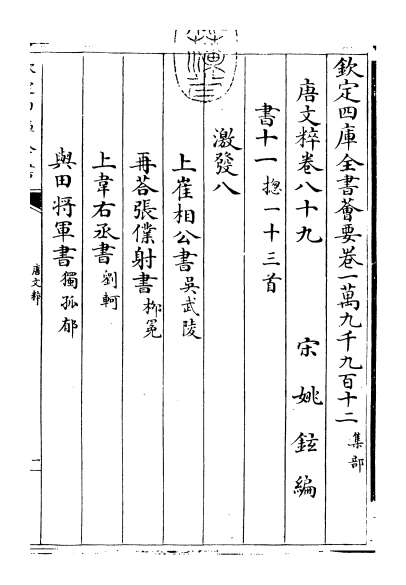 欽定四庫全書薈要卷一萬九千九百十二 集部
唐文粹卷八十九
宋 姚鉉編
書十一 摠一十三首
激發八
上崔相公書 吳武陵
再荅張僕射書 柳冕
上韋右丞書 劉軻
與田將軍書 獨孤郁
唐文粹